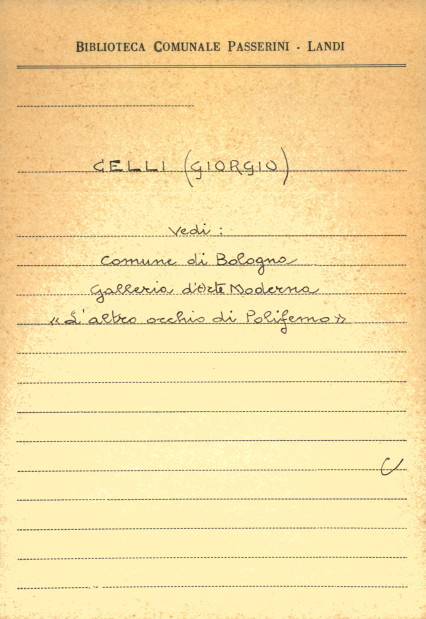 BIBLIOTECA COMUNALE PASSERINI - LANDI
CELLI (GIORGIO)
Vedi :
Comune di Bologna
Galleria d'Arte Moderna
« L'altro occhio di Polifemo »
C